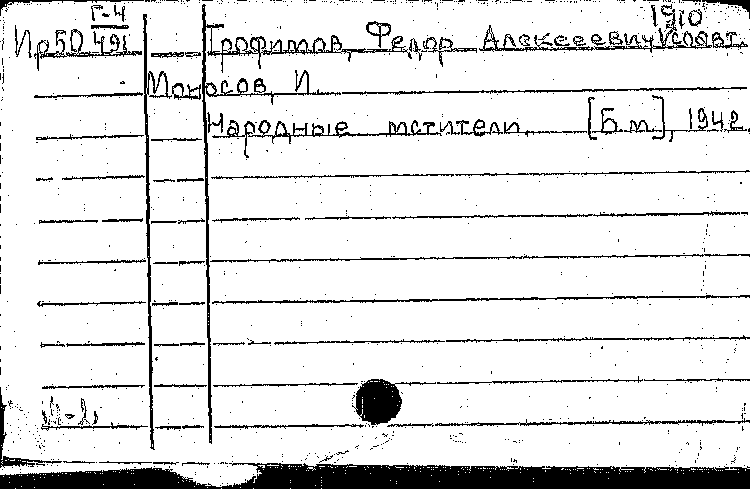 Г-4 1910
Ир50 491 Трофимов, Федор Алексеевич соавт.
Мокосов, И.
Народные мстители. [Б.м.], 1942